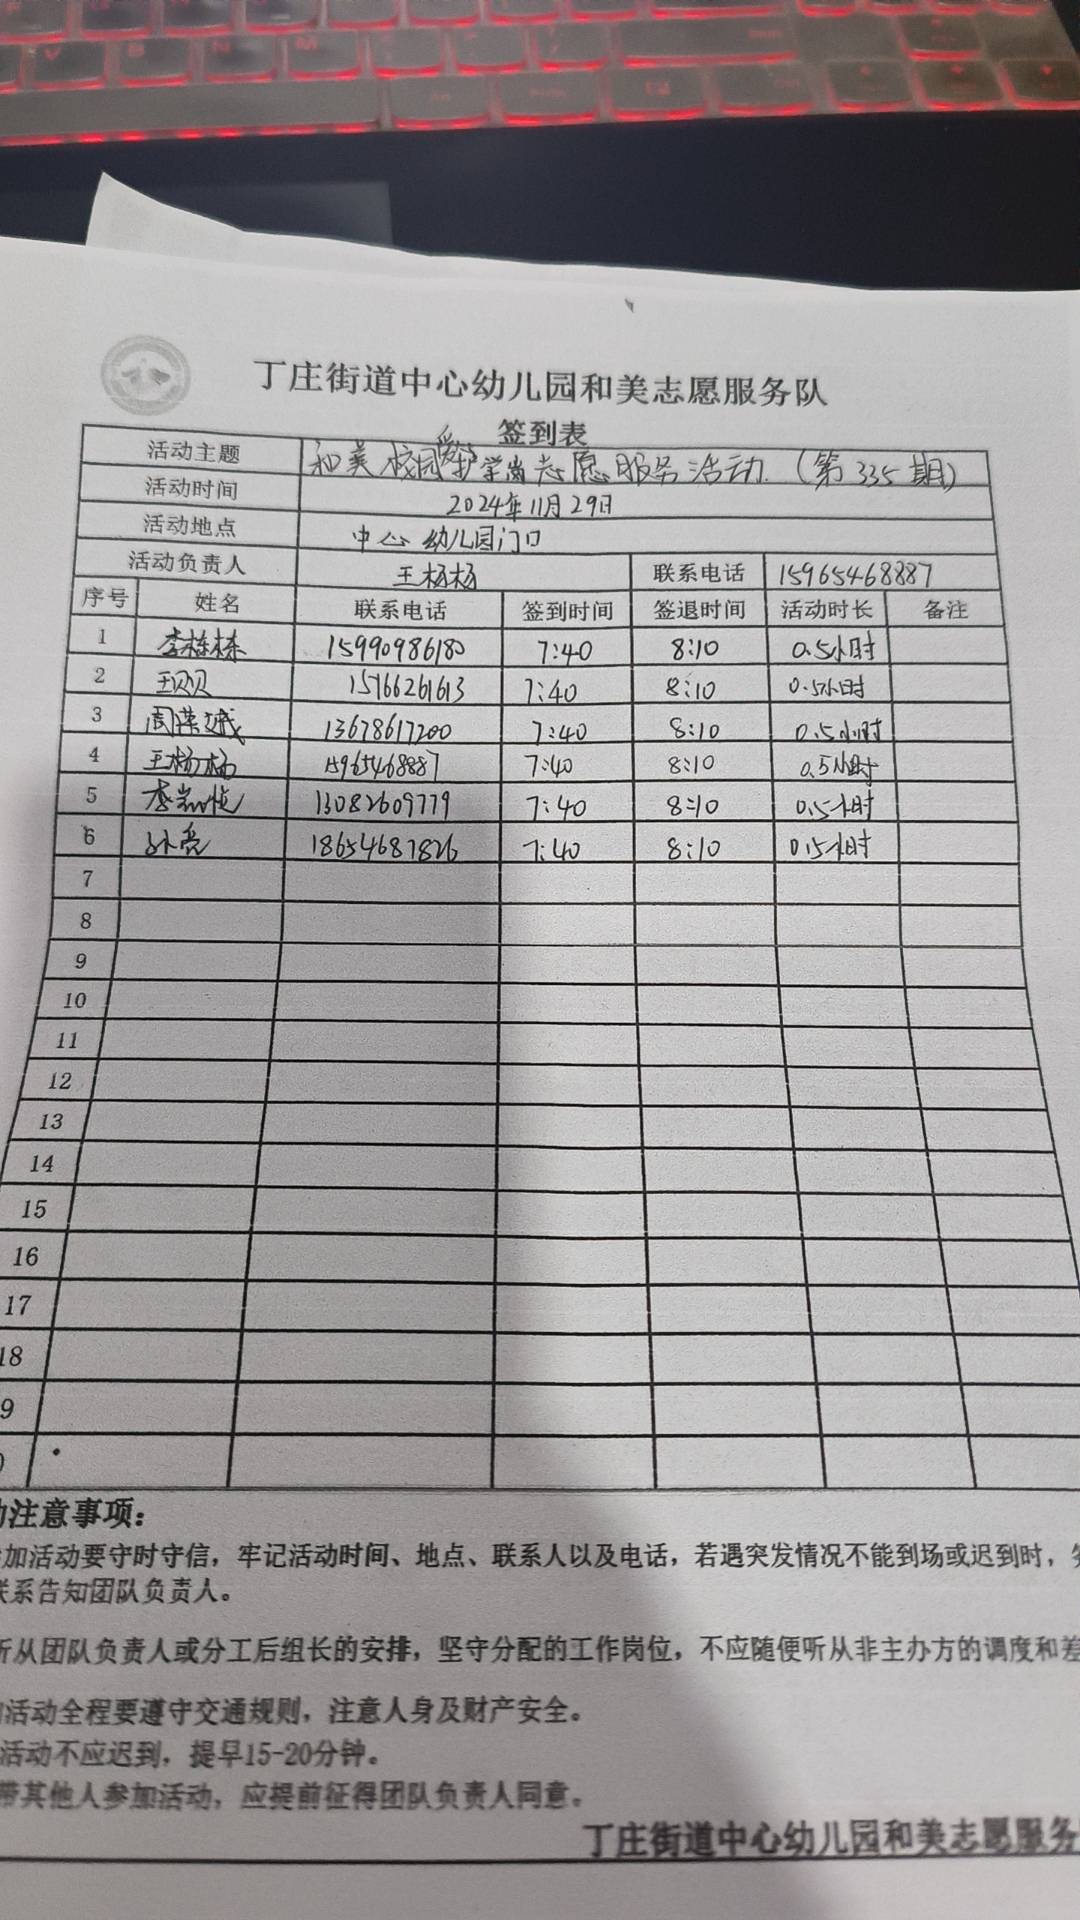 丁庄街道中心幼儿园和美志愿服务队
签到表
活动主题 和美校园爱护学岗志愿服务活动.（第335期）
活动时间 2024年11月29日
活动地点 中心幼儿园门口
活动负责人 王杨杨 联系电话 15965468887
序号 姓名 联系电话 签到时间 签退时间 活动时长 备注
1 李栋栋 15990986180 7:40 8:10 0.5小时
2 王贝贝 15166261613 7:40 8:10 0.5小时
3 13678617200 7:40 8:10 0.5小时
4 王杨杨 15965468887 7:40 8:10 0.5小时
5 13082609779 7:40 8:10 0.5小时
6 孙亮 18654687826 7:40 8:10 0.5小时
7
8
9
10
11
12
13
14
15
16
17
18
9
注意事项：
加活动要守时守信，牢记活动时间、地点、联系人以及电话，若遇突发情况不能到场或迟到时，
联系告知团队负责人。
听从团队负责人或分工后组长的安排，坚守分配的工作岗位，不应随便听从非主办方的调度和差
活动全程要遵守交通规则，注意人身及财产安全。
活动不应迟到，提早15-20分钟。
带其他人参加活动，应提前征得团队负责人同意。
丁庄街道中心幼儿园和美志愿服务